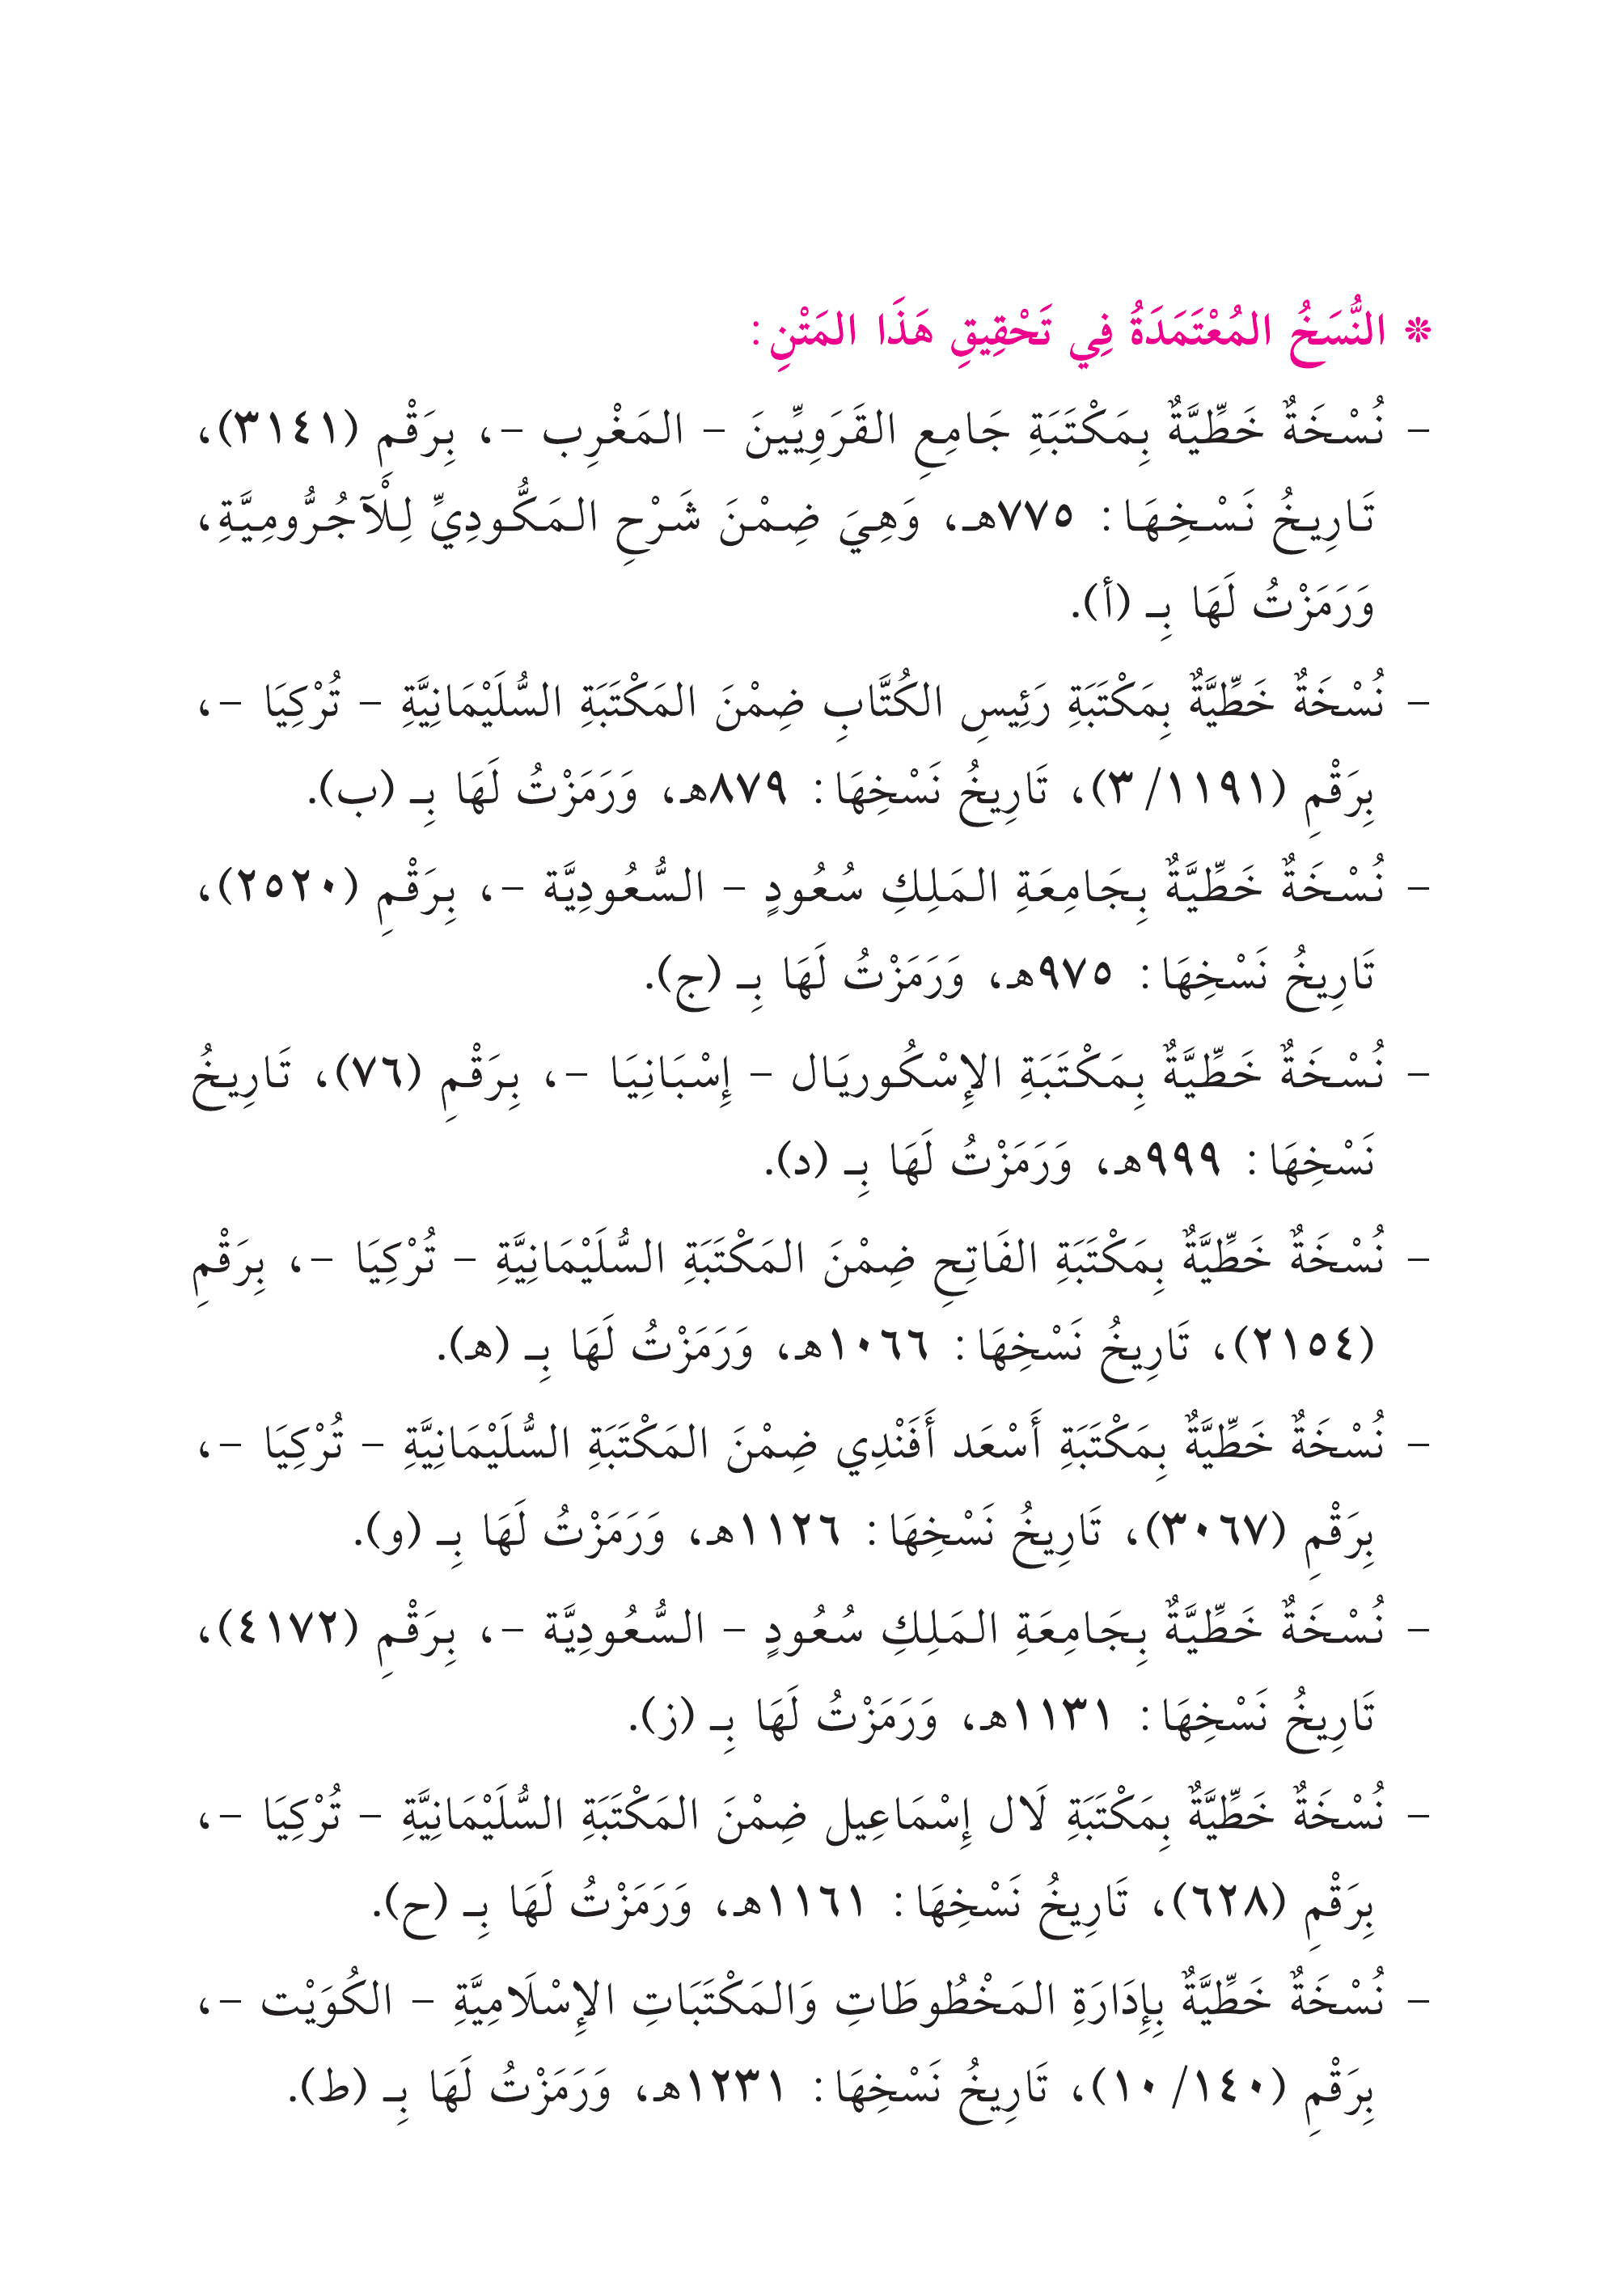 * النُّسَخُ المُعْتَمَدَةُ فِي تَحْقِيقِ هَذَا المَتْنِ:
- نُسْخَةٌ خَطِّيَّةٌ بِمَكْتَبَةِ جَامِعِ القَرَوِيِّينَ - المَغْرِب -، بِرَقْمِ (٣١٤١)،
تَارِيخُ نَسْخِهَا: ٧٧٥هـ، وَهِيَ ضِمْنَ شَرْحِ المَكُّودِيِّ لِلْآجُرُّومِيَّةِ،
وَرَمَزْتُ لَهَا بِـ (أ).
- نُسْخَةٌ خَطِّيَّةٌ بِمَكْتَبَةِ رَئِيسِ الكُتَّابِ ضِمْنَ المَكْتَبَةِ السُّلَيْمَانِيَّةِ - تُرْكِيَا -،
بِرَقْمِ (٣/١١٩١)، تَارِيخُ نَسْخِهَا: ٨٧٩هـ، وَرَمَزْتُ لَهَا بِـ (ب).
- نُسْخَةٌ خَطِّيَّةٌ بِجَامِعَةِ المَلِكِ سُعُودٍ - السُّعُودِيَّة -، بِرَقْمِ (٢٥٢٠)،
تَارِيخُ نَسْخِهَا: ٩٧٥هـ، وَرَمَزْتُ لَهَا بِـ (ج).
- نُسْخَةٌ خَطِّيَّةٌ بِمَكْتَبَةِ الإِسْكُورِيَال - إِسْبَانِيَا -، بِرَقْمِ (٧٦)، تَارِيخُ
نَسْخِهَا: ٩٩٩هـ، وَرَمَزْتُ لَهَا بِـ (د).
- نُسْخَةٌ خَطِّيَّةٌ بِمَكْتَبَةِ الفَاتِحِ ضِمْنَ المَكْتَبَةِ السُّلَيْمَانِيَّةِ - تُرْكِيَا -، بِرَقْمِ
(٢١٥٤)، تَارِيخُ نَسْخِهَا: ١٠٦٦هـ، وَرَمَزْتُ لَهَا بِـ (هـ).
- نُسْخَةٌ خَطِّيَّةٌ بِمَكْتَبَةِ أَسْعَد أَفَنْدِي ضِمْنَ المَكْتَبَةِ السُّلَيْمَانِيَّةِ - تُرْكِيَا -،
بِرَقْمِ (٣٠٦٧)، تَارِيخُ نَسْخِهَا: ١١٢٦هـ، وَرَمَزْتُ لَهَا بِـ (و).
- نُسْخَةٌ خَطِّيَّةٌ بِجَامِعَةِ المَلِكِ سُعُودٍ - السُّعُودِيَّة -، بِرَقْمِ (٤١٧٢)،
تَارِيخُ نَسْخِهَا: ١١٣١هـ، وَرَمَزْتُ لَهَا بِـ (ز).
- نُسْخَةٌ خَطِّيَّةٌ بِمَكْتَبَةِ لَال إِسْمَاعِيل ضِمْنَ المَكْتَبَةِ السُّلَيْمَانِيَّةِ - تُرْكِيَا -،
بِرَقْمِ (٦٢٨)، تَارِيخُ نَسْخِهَا: ١١٦١هـ، وَرَمَزْتُ لَهَا بِـ (ح).
- نُسْخَةٌ خَطِّيَّةٌ بِإِدَارَةِ المَخْطُوطَاتِ وَالمَكْتَبَاتِ الإِسْلَامِيَّةِ - الكُوَيْت -،
بِرَقْمِ (١٠/١٤٠)، تَارِيخُ نَسْخِهَا: ١٢٣١هـ، وَرَمَزْتُ لَهَا بِـ (ط).